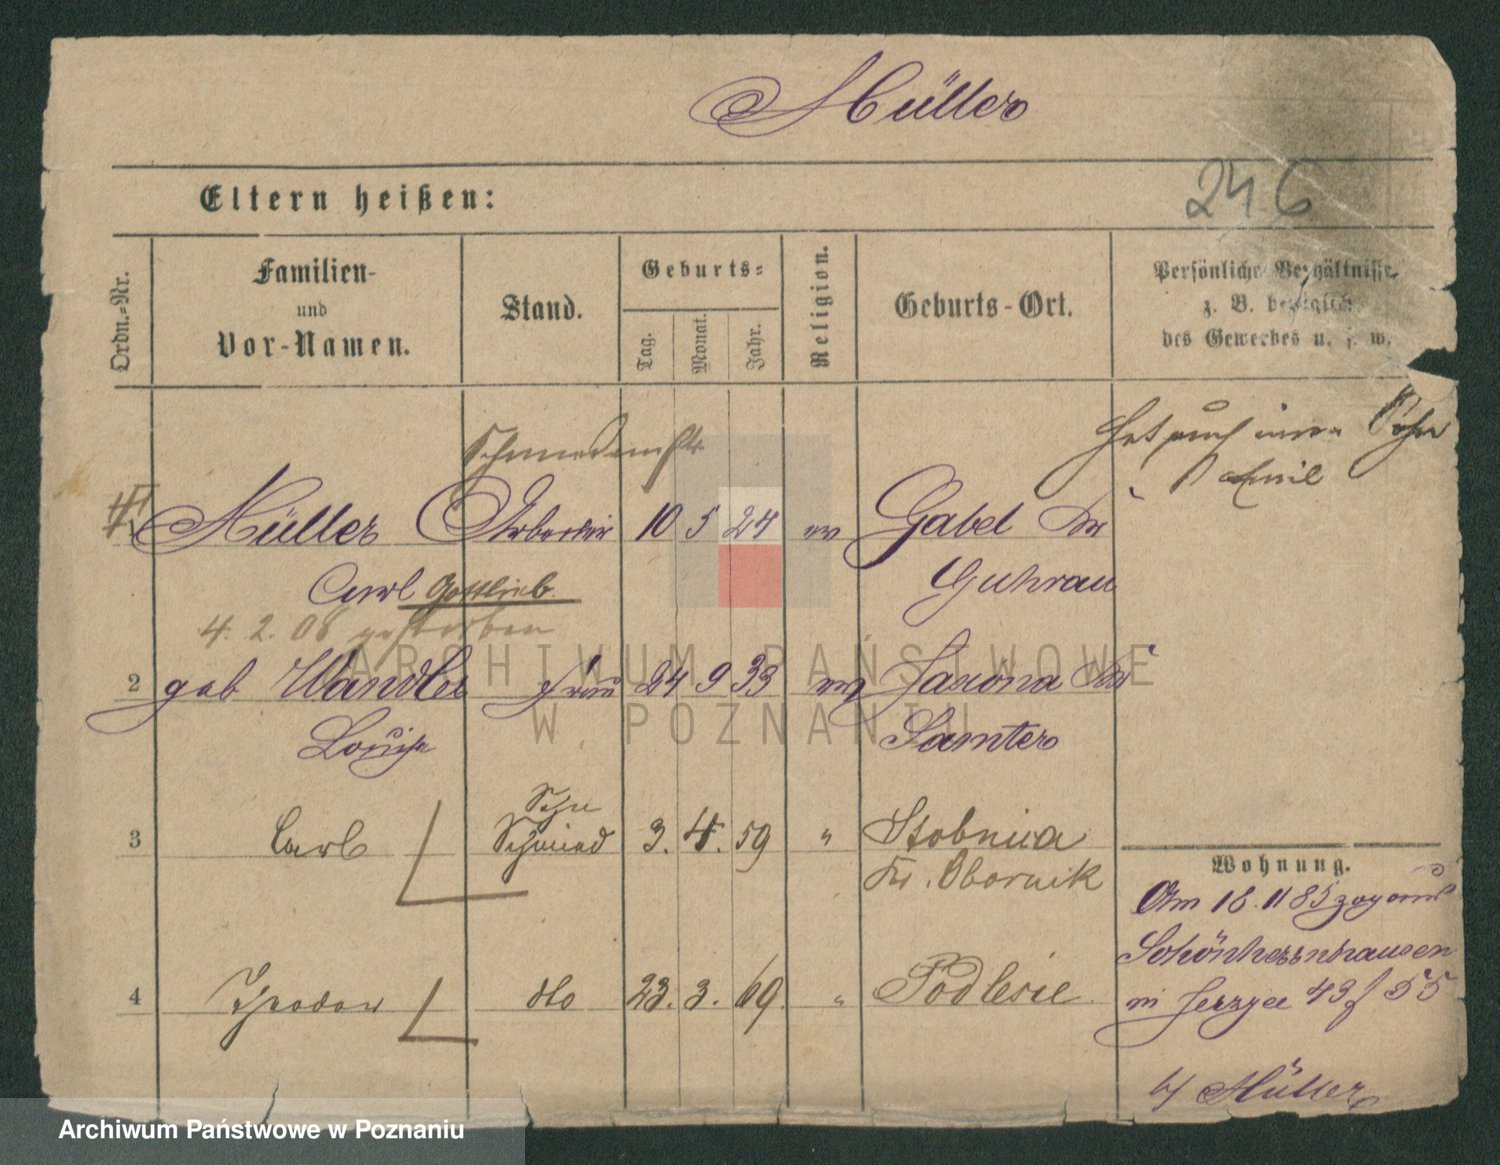 Müller
246
Eltern heißen:
Ordn.-Nr.
Familien-
und
Vor-Namen.
Stand.
Geburts-
Tag.
Monat.
Jahr.
Religion.
Geburts-Ort.
Persönliche Verhältnisse
z. B. bezüglich
des Gewerbes u. s. w.
Hat auch
Emil
1 Müller Arbeiter 10 5 24 ev Gabel Kr
Carl Gottlieb Guhrau
4. 2. 08 gestorben
2 geb Wandler Frau 24 9 33 ev Kr
Louise Samter
3 Carl Schmied 3. 4. 59 " Stobnica
Kr. Obornik
4 Theodor dto 23. 3. 69. " Podlesie
Wohnung.
Am 18.11 85
Schönherrnhausen
in Jerzyce 43 f 55
b/ Müller
ARCHIWUM PAŃSTWOWE
W POZNANIU
Archiwum Państwowe w Poznaniu